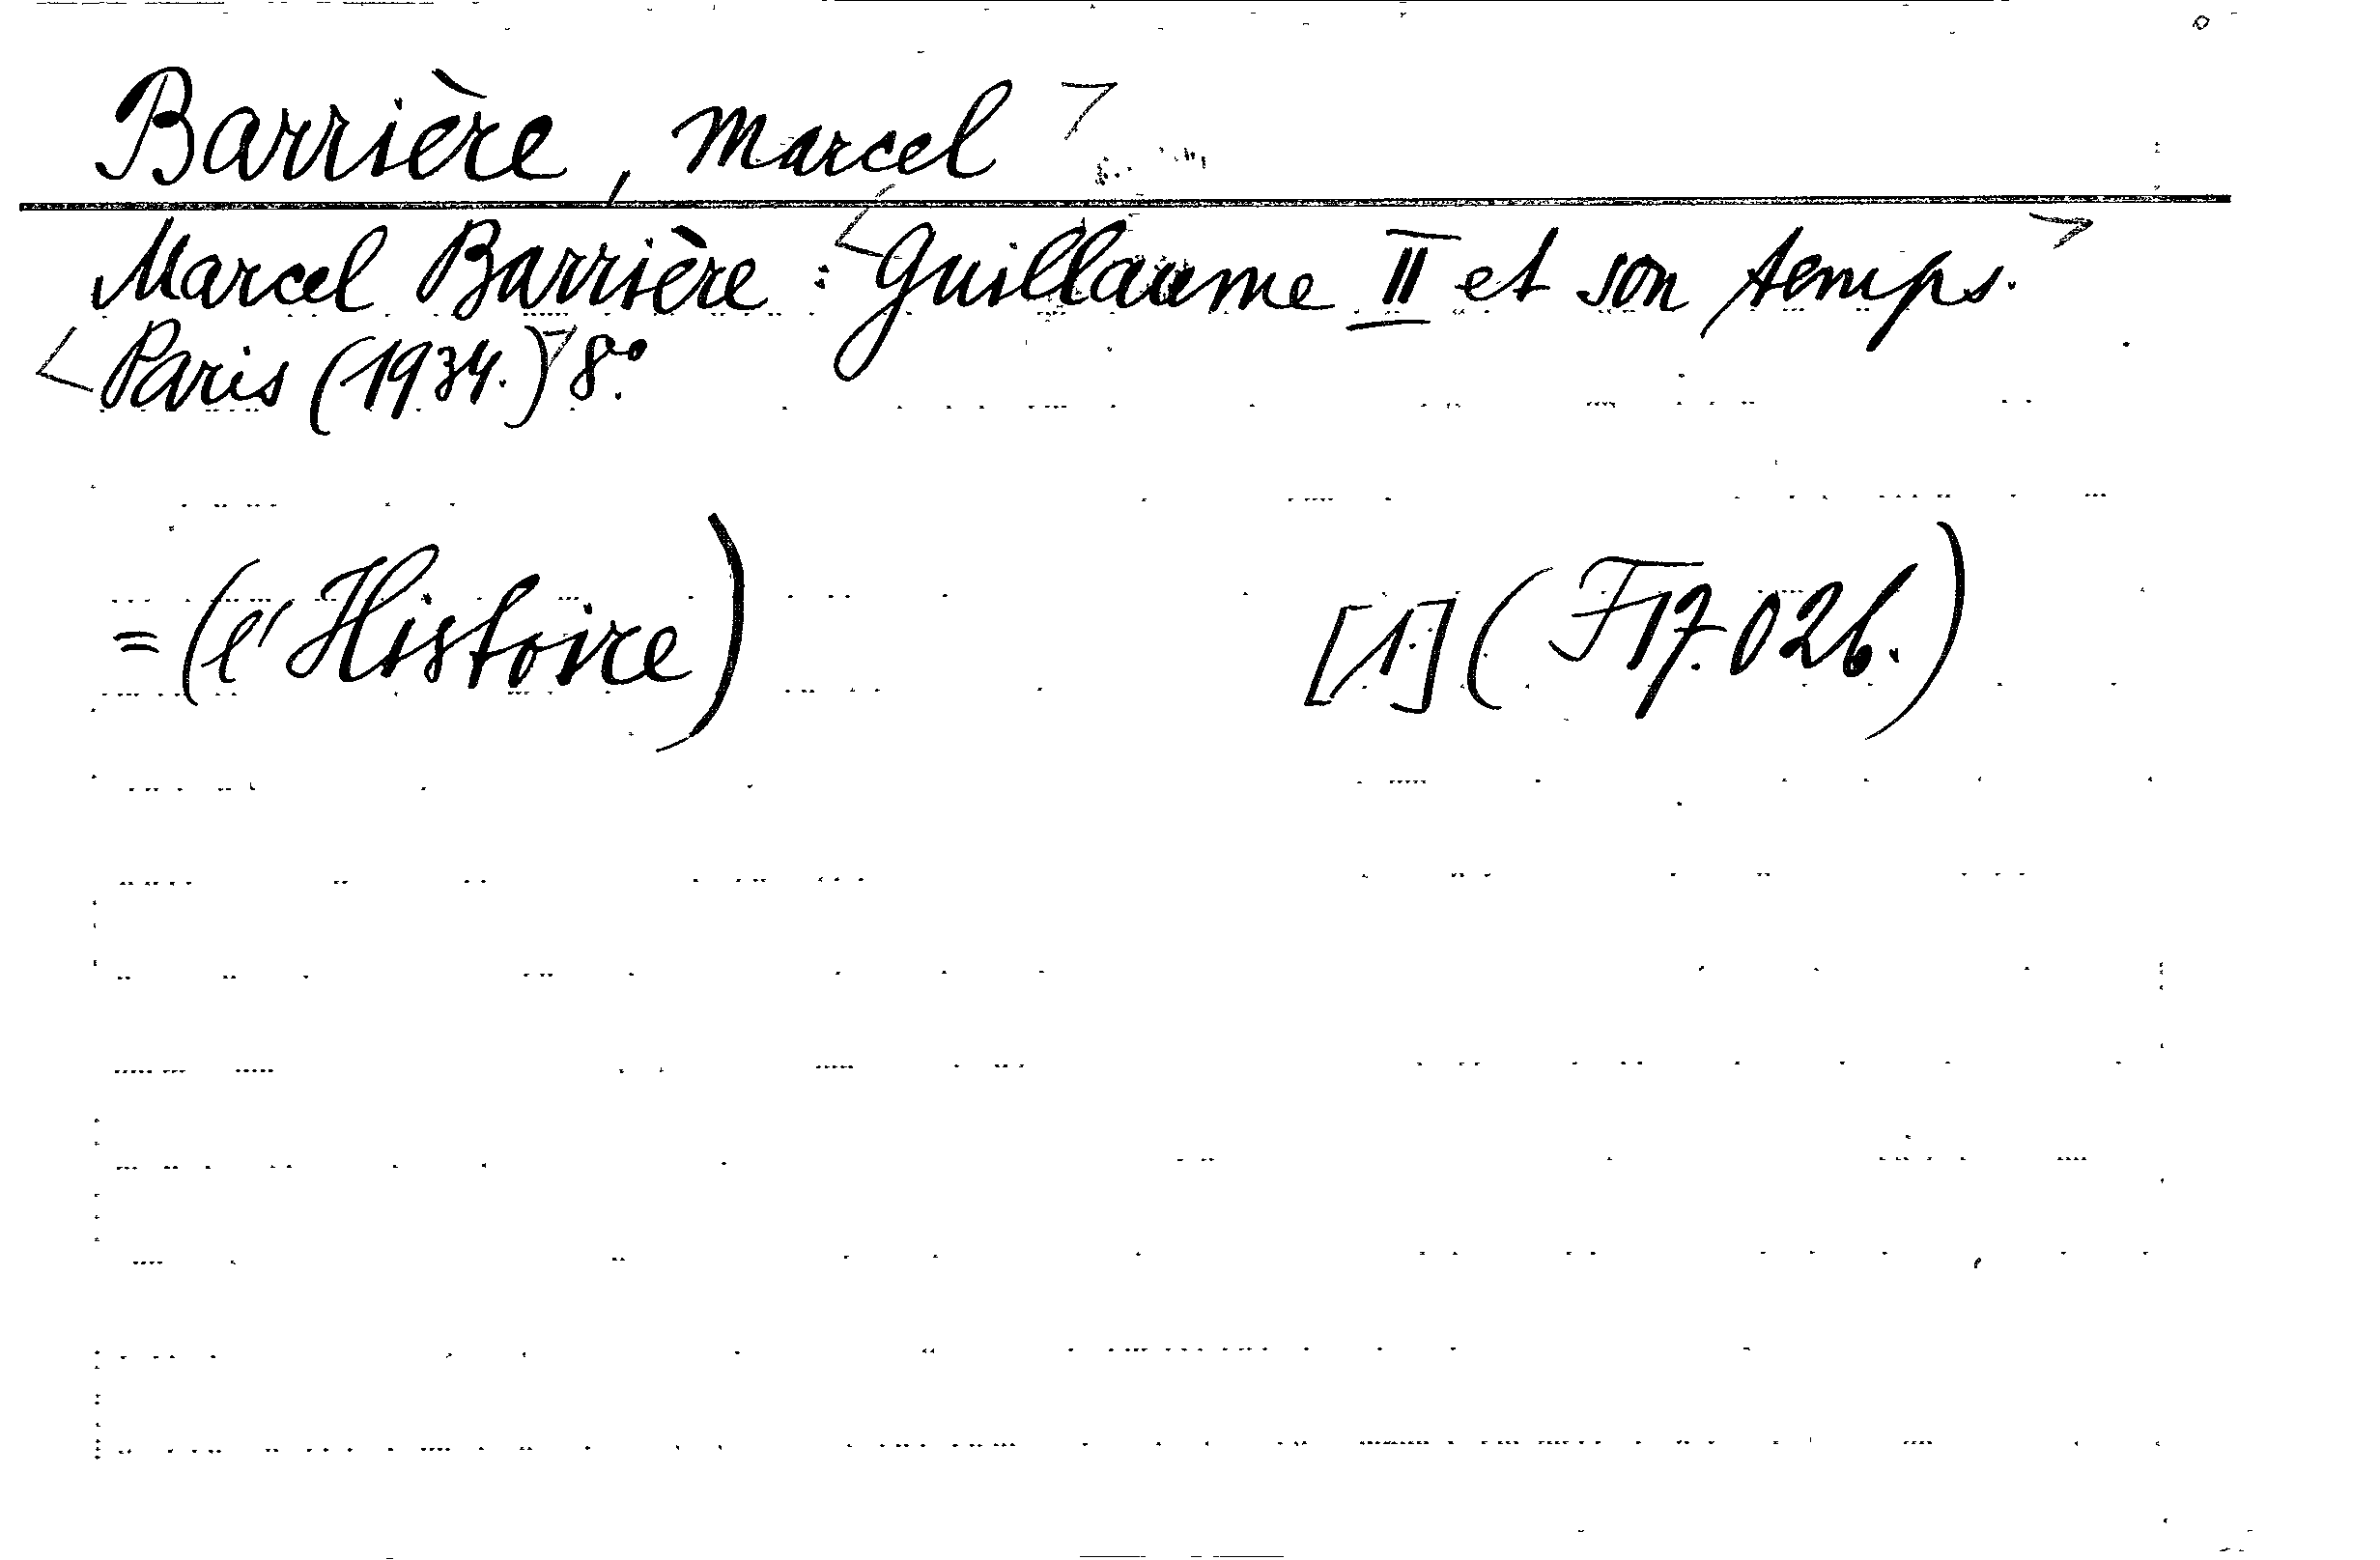 Barrière, Marcel
Marcel Barrière: Guillaume II et son temps.
Paris (1934.) 8°.
= (l'Histoire) [1.] (F17.026.)